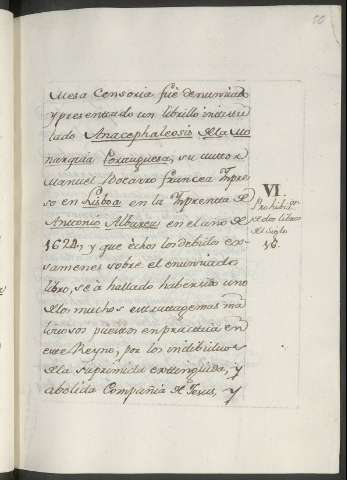 50
Mesa Censoria fuè denunciado
y presentado un librillo intitu
lado Anacephaleosis de la Mo
narquia Portuguesa, su autor
Manuel Bocarro Frances Impre
so en Lisboa en la Imprenta de
Antonio Albarez en el año de
1624, y que èchos los debidos ex-
samenes sobre el enunciado
libro, se à hallado haber sido uno
de los muchos estratagemas ma
liciosos puestos en practica en
este Reyno, por los individuos
de la suprimida extinguida, y
abolida Compañia de Jesus, y
VI
de dos libros
del siglo
16.